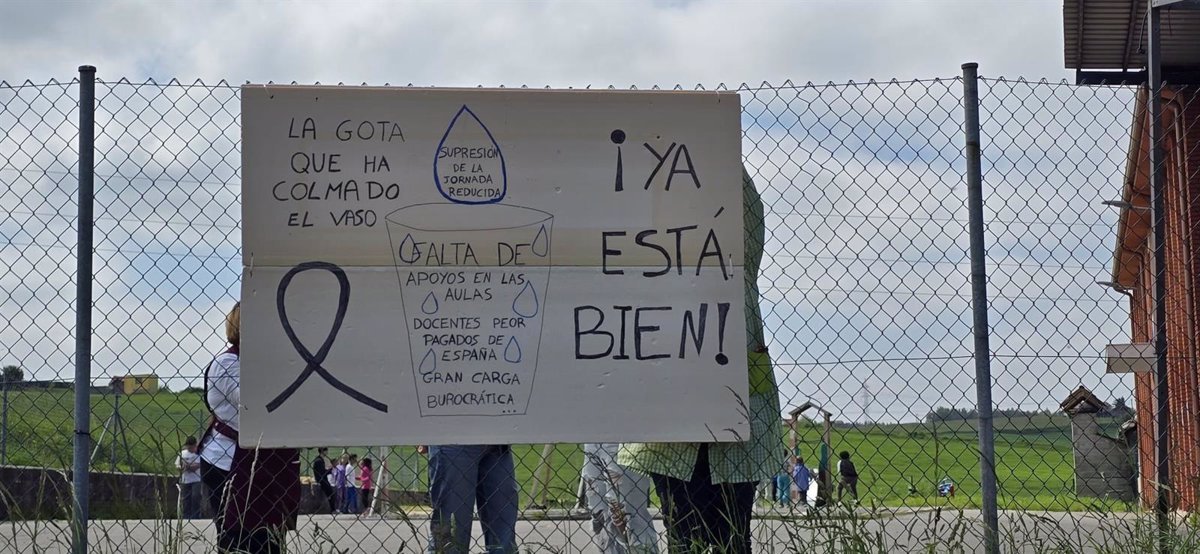 LA GOTA
QUE HA
COLMADO
EL VASO
SUPRESIÓN
DE LA
JORNADA
REDUCIDA
FALTA DE
APOYOS EN LAS
AULAS
DOCENTES PEOR
PAGADOS DE
ESPAÑA
GRAN CARGA
BUROCRÁTICA...
¡YA
ESTÁ
BIEN!